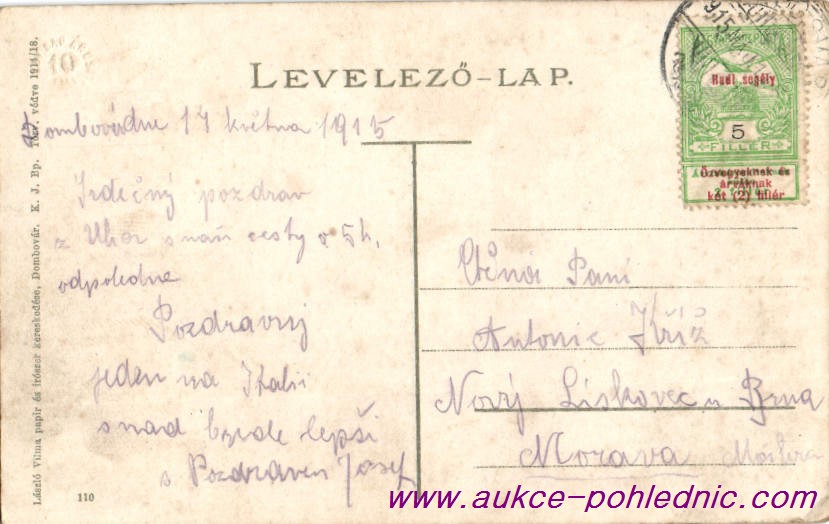 László Vilma papir és irószer kereskedése, Dombovár. K. J. Bp. Törv. védve 1914/18.
LEVELEZŐ-LAP.
1915
Hadi segély
5
FILLÉR
Özvegyeknek és
árváknak
két (2) fillér
17 května 1915
Srdečný pozdrav
z Uher cesty o 5 h.
odpoledne
Pozdravuj
jeden na Italii
snad bude lepší
s Pozdravem Josef
Ctěná Paní
Antonie Kříž
Nový Lískovec u Brna
Morava
110
www.aukce-pohlednic.com